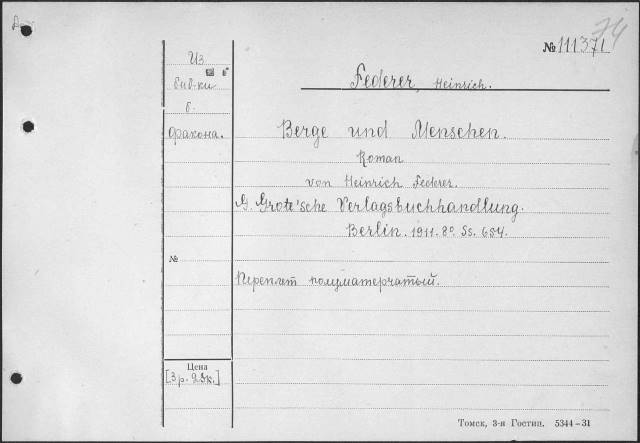 74
№ 111371
Из
библ-ки
б.
фракона.
Federer, Heinrich.
Berge und Menschen.
Roman
von Heinrich Federer.
G. Grote'sche Verlagsbuchhandlung.
Berlin. 1911. 8° Ss. 654.
№
Переплет полуматерчатый.
Цена
[3 р. 23к.]
Томск, 3-я Гостип. 5344-31